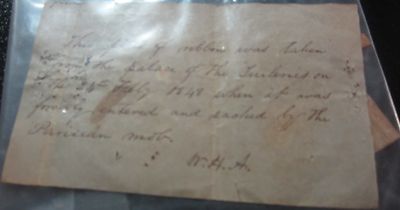 This piece of ribbon was taken
from the palace of The Tuileries on
the 24th Feby 1848 when it was
forcibly entered and sacked by the
Parisian mob.
W. H. A.